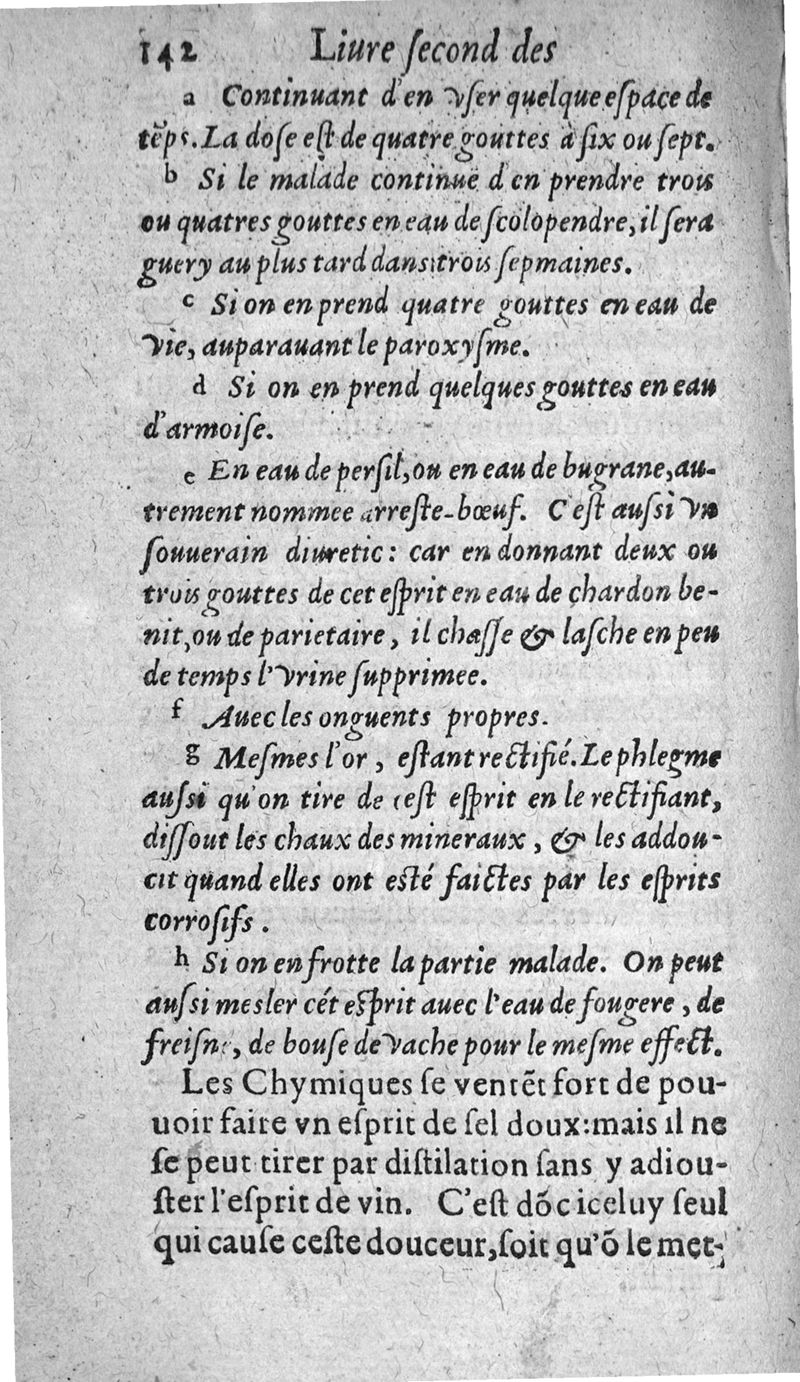 142 Liure ſecond des
a Continuant d'en vſer quelque eſpace de
tẽps. La doſe eſt de quatre gouttes à ſix ou ſept.
b Si le malade continuë d'en prendre trois
ou quatres gouttes en eau de ſcolopendre, il ſera
guery au plus tard dans trois ſepmaines.
c Si on en prend quatre gouttes en eau de
vie, auparauant le paroxyſme.
d Si on en prend quelques gouttes en eau
d'armoiſe.
e En eau de perſil, ou en eau de bugrane, au-
trement nommee arreſte-bœuf. C'eſt auſsi vn
ſouuerain diuretic: car en donnant deux ou
trois gouttes de cet eſprit en eau de chardon be-
nit, ou de parietaire, il chaſſe & laſche en peu
de temps l'vrine ſupprimee.
f Auec les onguents propres.
g Meſmes l'or, eſtant rectifié. Le phlegme
auſsi qu'on tire de ceſt eſprit en le rectifiant,
diſſout les chaux des mineraux, & les addou-
cit quand elles ont eſté faictes par les eſprits
corroſifs.
h Si on en frotte la partie malade. On peut
auſsi meſler cét eſprit auec l'eau de fougere, de
freiſne, de bouſe de vache pour le meſme effect.
Les Chymiques ſe ventẽt fort de pou-
uoir faire vn eſprit de ſel doux: mais il ne
ſe peut tirer par diſtilation ſans y adiou-
ſter l'eſprit de vin. C'eſt dõc iceluy ſeul
qui cauſe ceſte douceur, ſoit qu'õ le met-